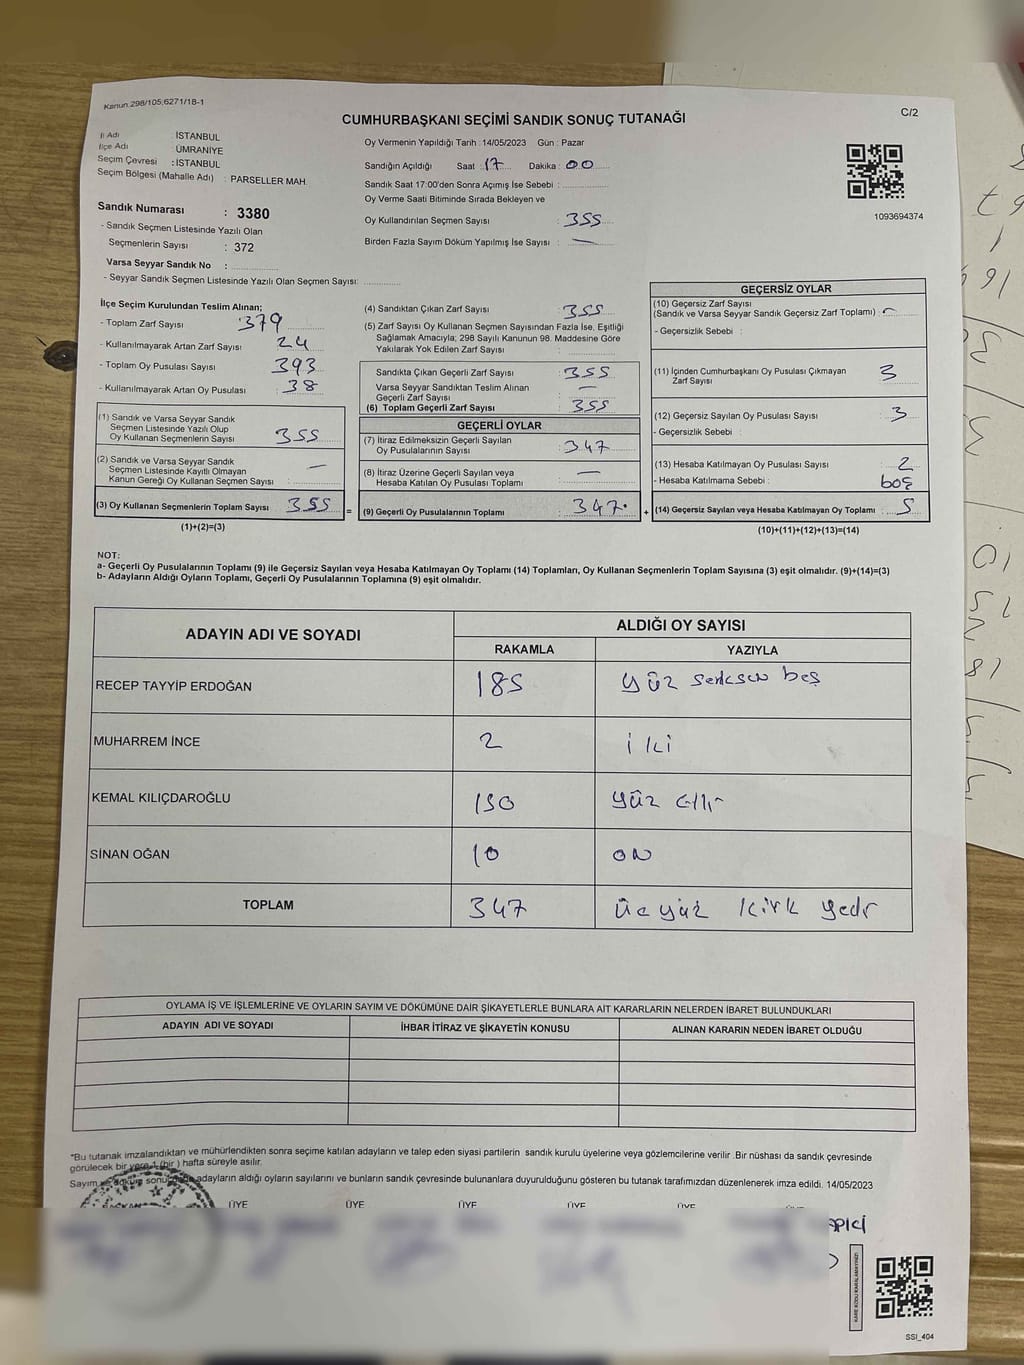 Kanun.298/105;6271/18-1
C/2
CUMHURBAŞKANI SEÇİMİ SANDIK SONUÇ TUTANAĞI
İl Adı : İSTANBUL
İlçe Adı : ÜMRANİYE
Seçim Çevresi : İSTANBUL
Seçim Bölgesi (Mahalle Adı) : PARSELLER MAH.
Sandık Numarası : 3380
- Sandık Seçmen Listesinde Yazılı Olan
Seçmenlerin Sayısı : 372
Varsa Seyyar Sandık No :
- Seyyar Sandık Seçmen Listesinde Yazılı Olan Seçmen Sayısı:
Oy Vermenin Yapıldığı Tarih : 14/05/2023 Gün : Pazar
Sandığın Açıldığı Saat : 17 Dakika : 00
Sandık Saat 17:00'den Sonra Açımış İse Sebebi :
Oy Verme Saati Bitiminde Sırada Bekleyen ve
Oy Kullandırılan Seçmen Sayısı : 355
Birden Fazla Sayım Döküm Yapılmış İse Sayısı : —
1093694374
İlçe Seçim Kurulundan Teslim Alınan;
- Toplam Zarf Sayısı : 379
- Kullanılmayarak Artan Zarf Sayısı : 24
- Toplam Oy Pusulası Sayısı : 393
- Kullanılmayarak Artan Oy Pusulası : 38
(1) Sandık ve Varsa Seyyar Sandık
Seçmen Listesinde Yazılı Olup
Oy Kullanan Seçmenlerin Sayısı : 355
(2) Sandık ve Varsa Seyyar Sandık
Seçmen Listesinde Kayıtlı Olmayan
Kanun Gereği Oy Kullanan Seçmen Sayısı : —
(3) Oy Kullanan Seçmenlerin Toplam Sayısı : 355
(1)+(2)=(3)
(4) Sandıktan Çıkan Zarf Sayısı : 355
(5) Zarf Sayısı Oy Kullanan Seçmen Sayısından Fazla İse, Eşitliği
Sağlamak Amacıyla; 298 Sayılı Kanunun 98. Maddesine Göre
Yakılarak Yok Edilen Zarf Sayısı :
Sandıkta Çıkan Geçerli Zarf Sayısı : 355
Varsa Seyyar Sandıktan Teslim Alınan
Geçerli Zarf Sayısı : —
(6) Toplam Geçerli Zarf Sayısı : 355
GEÇERLİ OYLAR
(7) İtiraz Edilmeksizin Geçerli Sayılan
Oy Pusulalarının Sayısı : 347
(8) İtiraz Üzerine Geçerli Sayılan veya
Hesaba Katılan Oy Pusulası Toplamı : —
= (9) Geçerli Oy Pusulalarının Toplamı : 347
GEÇERSİZ OYLAR
(10) Geçersiz Zarf Sayısı
(Sandık ve Varsa Seyyar Sandık Geçersiz Zarf Toplamı) :
- Geçersizlik Sebebi :
(11) İçinden Cumhurbaşkanı Oy Pusulası Çıkmayan
Zarf Sayısı : 3
(12) Geçersiz Sayılan Oy Pusulası Sayısı : 3
- Geçersizlik Sebebi :
(13) Hesaba Katılmayan Oy Pusulası Sayısı : 2
- Hesaba Katılmama Sebebi : boş
+ (14) Geçersiz Sayılan veya Hesaba Katılmayan Oy Toplamı : 5
(10)+(11)+(12)+(13)=(14)
NOT:
a- Geçerli Oy Pusulalarının Toplamı (9) ile Geçersiz Sayılan veya Hesaba Katılmayan Oy Toplamı (14) Toplamları, Oy Kullanan Seçmenlerin Toplam Sayısına (3) eşit olmalıdır. (9)+(14)=(3)
b- Adayların Aldığı Oyların Toplamı, Geçerli Oy Pusulalarının Toplamına (9) eşit olmalıdır.
ADAYIN ADI VE SOYADI
ALDIĞI OY SAYISI
RAKAMLA YAZIYLA
RECEP TAYYİP ERDOĞAN 185 yüz seksen beş
MUHARREM İNCE 2 iki
KEMAL KILIÇDAROĞLU 150 yüz elli
SİNAN OĞAN 10 ON
TOPLAM 347 Üçyüz kırk yedi
OYLAMA İŞ VE İŞLEMLERİNE VE OYLARIN SAYIM VE DÖKÜMÜNE DAİR ŞİKAYETLERLE BUNLARA AİT KARARLARIN NELERDEN İBARET BULUNDUKLARI
ADAYIN ADI VE SOYADI İHBAR İTİRAZ VE ŞİKAYETİN KONUSU ALINAN KARARIN NEDEN İBARET OLDUĞU
*Bu tutanak imzalandıktan ve mühürlendikten sonra seçime katılan adayların ve talep eden siyasi partilerin sandık kurulu üyelerine veya gözlemcilerine verilir .Bir nüshası da sandık çevresinde
görülecek bir yere 1 (bir ) hafta süreyle asılır.
Sayım ve döküm sonunda adayların aldığı oyların sayılarını ve bunların sandık çevresinde bulunanlara duyurulduğunu gösteren bu tutanak tarafımızdan düzenlenerek imza edildi. 14/05/2023
BAŞKAN ÜYE ÜYE ÜYE ÜYE ÜYE
SSI_404